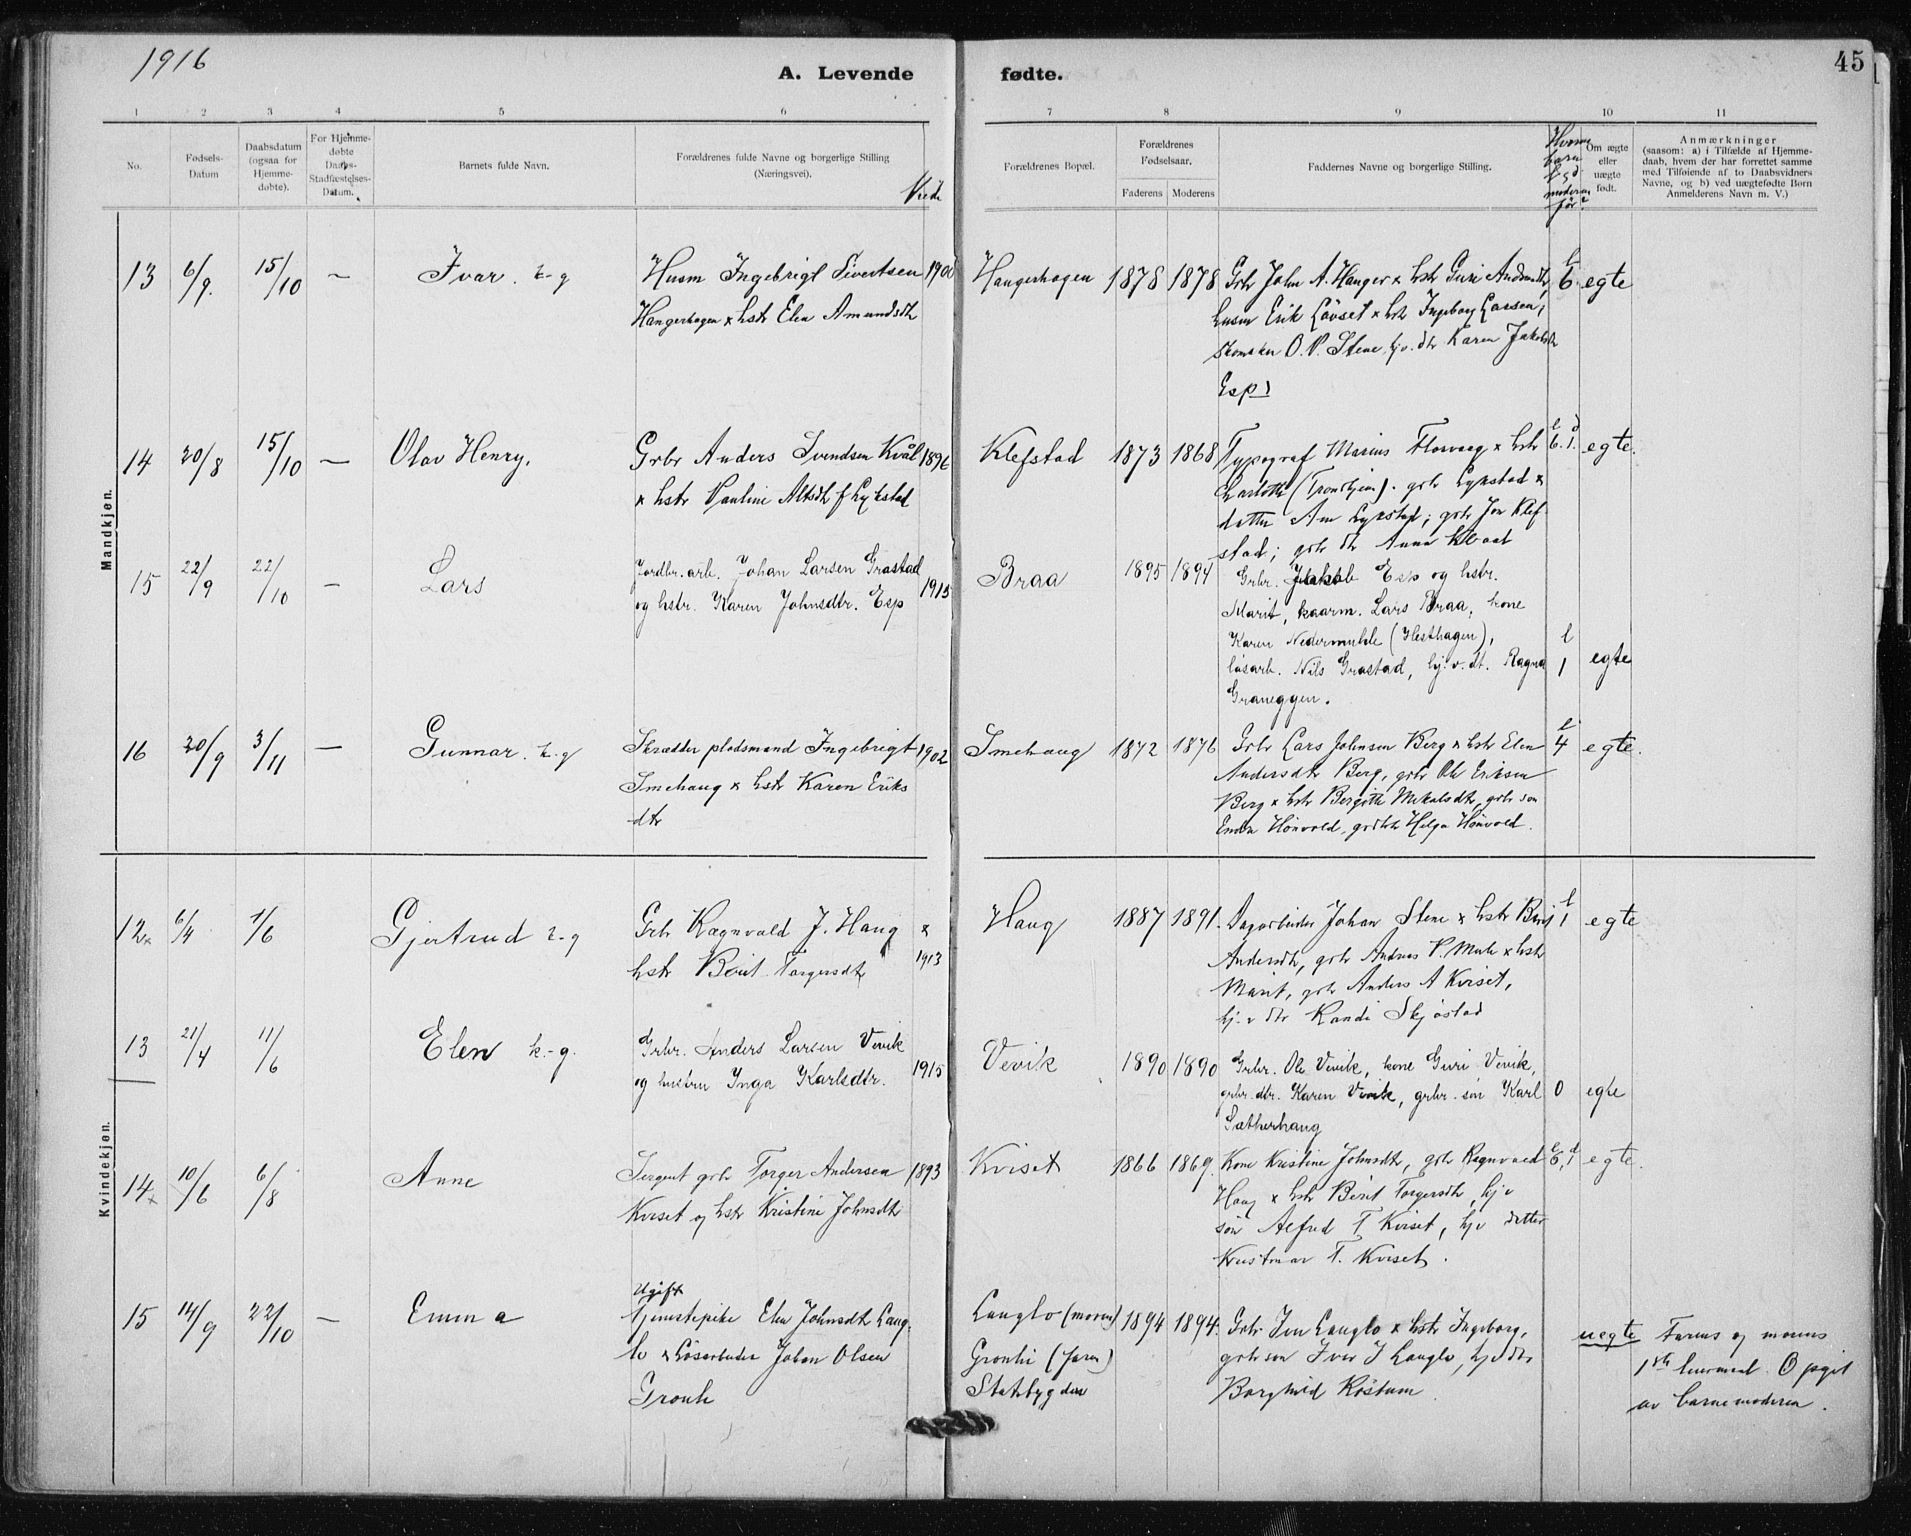 1916
A. Levende fødte.
45
1 2 3 4 5 6 7 8 9 10 11
No.
Fødsels-
Datum
Daabsdatum
(ogsaa for
Hjemme-
døbte).
For Hjemme-
døbte
Daabs-
Stadfæstelses-
Datum.
Barnets fulde Navn.
Forældrenes fulde Navne og borgerlige Stilling
(Næringsvei).
Viede
Forældrenes Bopæl.
Forældrenes
Fødselsaar.
Faderens Moderens
Faddernes Navne og borgerlige Stilling.
barn
moderen
før?
Om ægte
eller
uægte
født.
Anmærkninger
(saasom: a) i Tilfælde af Hjemme-
daab, hvem der har forrettet samme
med Tilføiende af to Daabsvidners
Navne, og b) ved uægtefødte Børn
Anmelderens Navn m. V.)
Mandkjøn.
13 6/9. 15/10 — Ivar. k-g
Husm Ingebrigt Sivertsen
Hangerhagen x hstr Elen Amundsdtr
Hangerhagen 1878 1878
Grbr John A. Hanger x hstr Guri
husm Erik Løvset x hstr Ingeborg Larsen,
O. P. Stene, hjv. dtr Karen Jakobsdtr
Esp.
l 6. egte
14 20/8 15/10 — Olav Henry.
Grbr Anders Svendsen Kvål 1896
x hstr Pauline
Klefstad 1873 1868
Typograf Marius x hstr
(Trondhjem). grbr x
datter grbr Jon Klef-
stad; grbr dtr Anna
l d
6. 1. egte.
15 22/9 22/10 — Lars
Jordbr. arb. Johan Larsen Grøstad
og hstr. Karen Johnsdtr. Esp 1915
Braa 1895 1894
Grbr. Jakob Esp og hstr.
Marit, kaarm. Lars Braa, kone
Karen (Hesthagen),
løsarb. Nils Grøstad, hj. v. dt. Ragna
Graneggen.
l
1 egte
16 20/9 3/11 — Gunnar. k-g
Skrædder pladsmand Ingebrigt 1902
Smehaug x hstr Karen Eriks
dtr
Smehaug 1872 1876
Grbr Lars Johnsen Berg x hstr Elen
Andersdtr Berg, grbr Ole Eriksen
Berg x hstr Bergitte Mikalsdtr, grbr søn
Hønvold, Helga Hønvold.
l
4 egte.
Kvindekjøn.
12x 6/4 1/6 Gjertrud k-g
Grbr Ragnvald J. Haug x
hstr Berit Torgersdtr 1913
Haug 1887 1891.
Dagarbeider Johan Stene x hstr Berit
Andersdtr, grbr P. x hstr
Marit, grbr Anders A Kviset,
hj. v dtr Randi Skjøstad
l
1 egte
13 21/4 11/6 Elen k.-g.
Grbr. Anders Larsen Vevik
og hustru Inga Karlsdtr. 1915
Vevik 1890 1890
Grbr. Ole Vevik, kone Guri Vevik,
grbr. dtr. Karen Vevik, grbr. søn Karl
Sætherhaug
0 egte
14x 10/6 6/8 Anne
Sergent grbr Torger Andersen 1893
Kviset og hstr Kristine Johnsdtr
Kviset 1866 1869.
Kone Kristine Johnsdtr, grbr Ragnvald
Haug x hstr Berit Torgersdtr, hj v
søn Alfred T Kviset, hj v datter
T. Kviset.
egte.
15 14/9 22/10 — Emma
Ugift
tjenestepike Elen Johnsdtr Lang-
lo x Løsarbeider Johan Olsen
Gronli
Langlo (moren) 1894 1894.
Gronli (faren)
Stadsbygden
Grbr. Langlo x hstr Ingeborg,
grbr søn Iver J Langlo,
Borghild Røstum
uegte
Farens og morens
1ste Opgit
av barnemoderen.